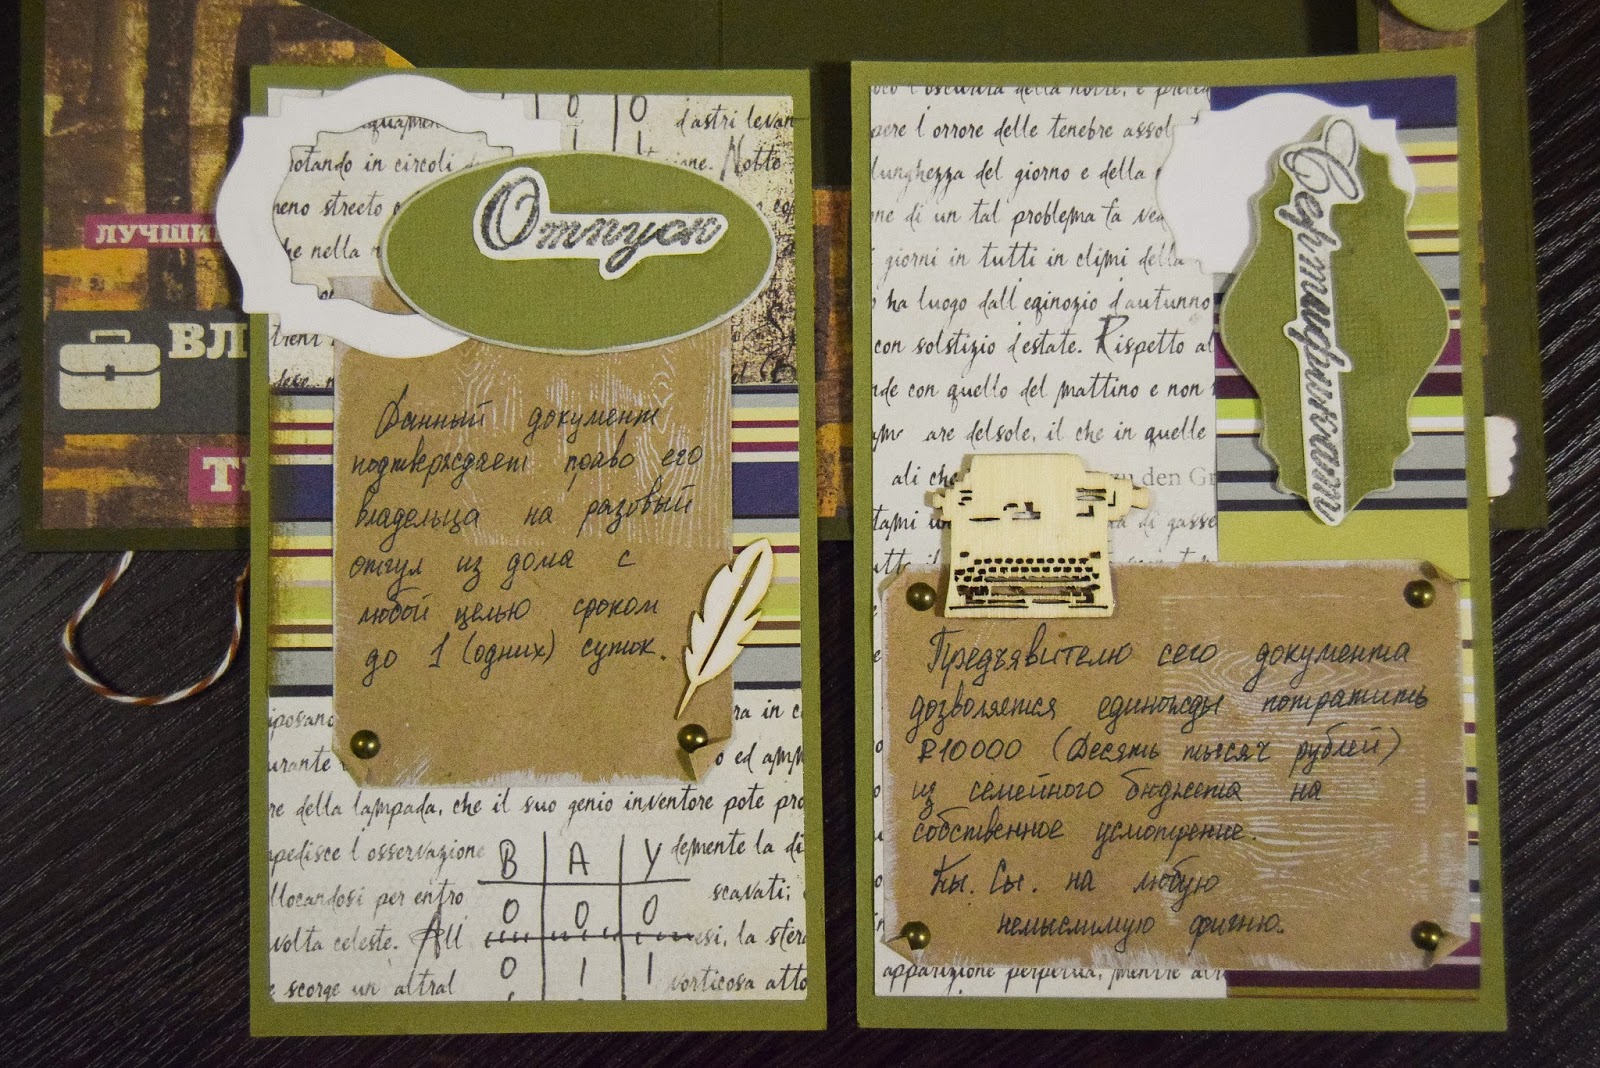 ЛУЧШИ
ВЛ
ТЕ
Отпуск
d'astri levan
notando in circoli
zione. Notte
meno streeto
he nella
Данный документ
подтверждает право его
владельца на разовый
отгул из дома с
любой целью сроком
до 1 (одних) суток.
ra in
urante
o ed amm
re della lampada, che il suo genio inventore pote pro
mpedisce l'osservazione
B A Y
demente la di
llocandosi per entro
0 0 0
scavati;
volta celeste. All
esi, la sfera
0 1 1
e scorge un altral
vorticosa atto
Сертификат
oco l'oscurita della notte, e preced
pere l'orrore delle tenebre assol
lunghezza del giorno e della
ne di un tal problema fa
giorni in tutti in climi della
ha luogo dall'eginozio d'autunno
con solstizio d'estate. Rispetto al
nde con quello del mattino e non
are delsole, il che in quelle
ali che
den Gr
tami
di gasse
Предъявителю сего документа
дозволяется единожды потратить
₽10000 (Десять тысяч рублей)
из семейного бюджета на
собственное усмотрение.
Пы. Сы. на любую
немыслимую фигню.
apparizione perpetua, mentre